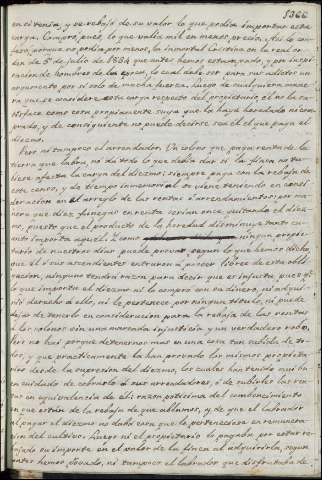 5366
en si tenia, y se rebajó de su valor lo que podia importar esta
carga. Compró, pues, lo que valia mil en menos precio. Asi lo con-
fesó, porque no podia por menos, la inmortal Cristina en la real or-
den de 5 de julio de 1834 que antes hemos estampado, y por inspi-
racion de hombres de la epoca, lo cual debe ser para sus adictos un
argumento por si solo de mucha fuerza. Luego de cualquiera mane-
ra que se considere esta carga respecto del propietario él no la sa-
tisface como cosa propiamente suya que le haya heredado ni com-
prado, y de consiguiente no puede decirse sea él el que paga el
diezmo.
Pero ni tampoco el arrendador. Un colono que paga renta de la
tierra que labra, no da todo lo que debia dar si la finca no tu-
viere afecta la carga del diezmo: siempre paga con la rebaja de
este censo, y de tiempo inmemorial se viene teniendo en consi-
deracion en el arreglo de las rentas ó arrendamientos: por ma-
nera que diez fanegas en renta serian once quitando el diez-
mo, puesto que el producto de la heredad disminuye tanto cu-
anto importa aquel: á como ningun propie-
tario de nuestros dias puede probar segun lo que hemos dicho
que él ó sus ascendientes entraron á poseer libres de esta obli-
gacion, ninguno tendrá razon para decir que es injusta, pues si
lo que importa el diezmo ni lo compró con su dinero, ni adqui-
rió derecho á ello, ni le pertenece por ningun titulo, ni puede
dejar de tenerlo en consideracion para la rebaja de las rentas
á los colonos sin una marcada injusticia y un verdadero robo.
Pero no hai porque detenernos mas en una cosa tan sabida de to-
dos, y que practicamente la han probado los mismos propieta-
rios desde la supresion del diezmo, los cuales han tenido mui bu-
en cuidado de cobrarlo á sus arrendadores, ó de subirles las ren-
tas en equivalencia de él: razon potisima del convencimiento
en que están de la rebaja de que hablamos, y de que el labrador
al pagar el diezmo no daba cosa que le perteneciera en remunera-
cion del cultivo. Luego ni el propietario lo pagaba por estar re-
bajado su importe en el valor de la finca al adquirirla, segun
antes hemos probado, ni tampoco el labrador que disfrutaba de